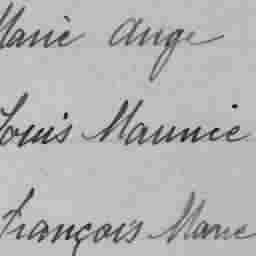 Marie Ange
Louis Maurice
François Marie